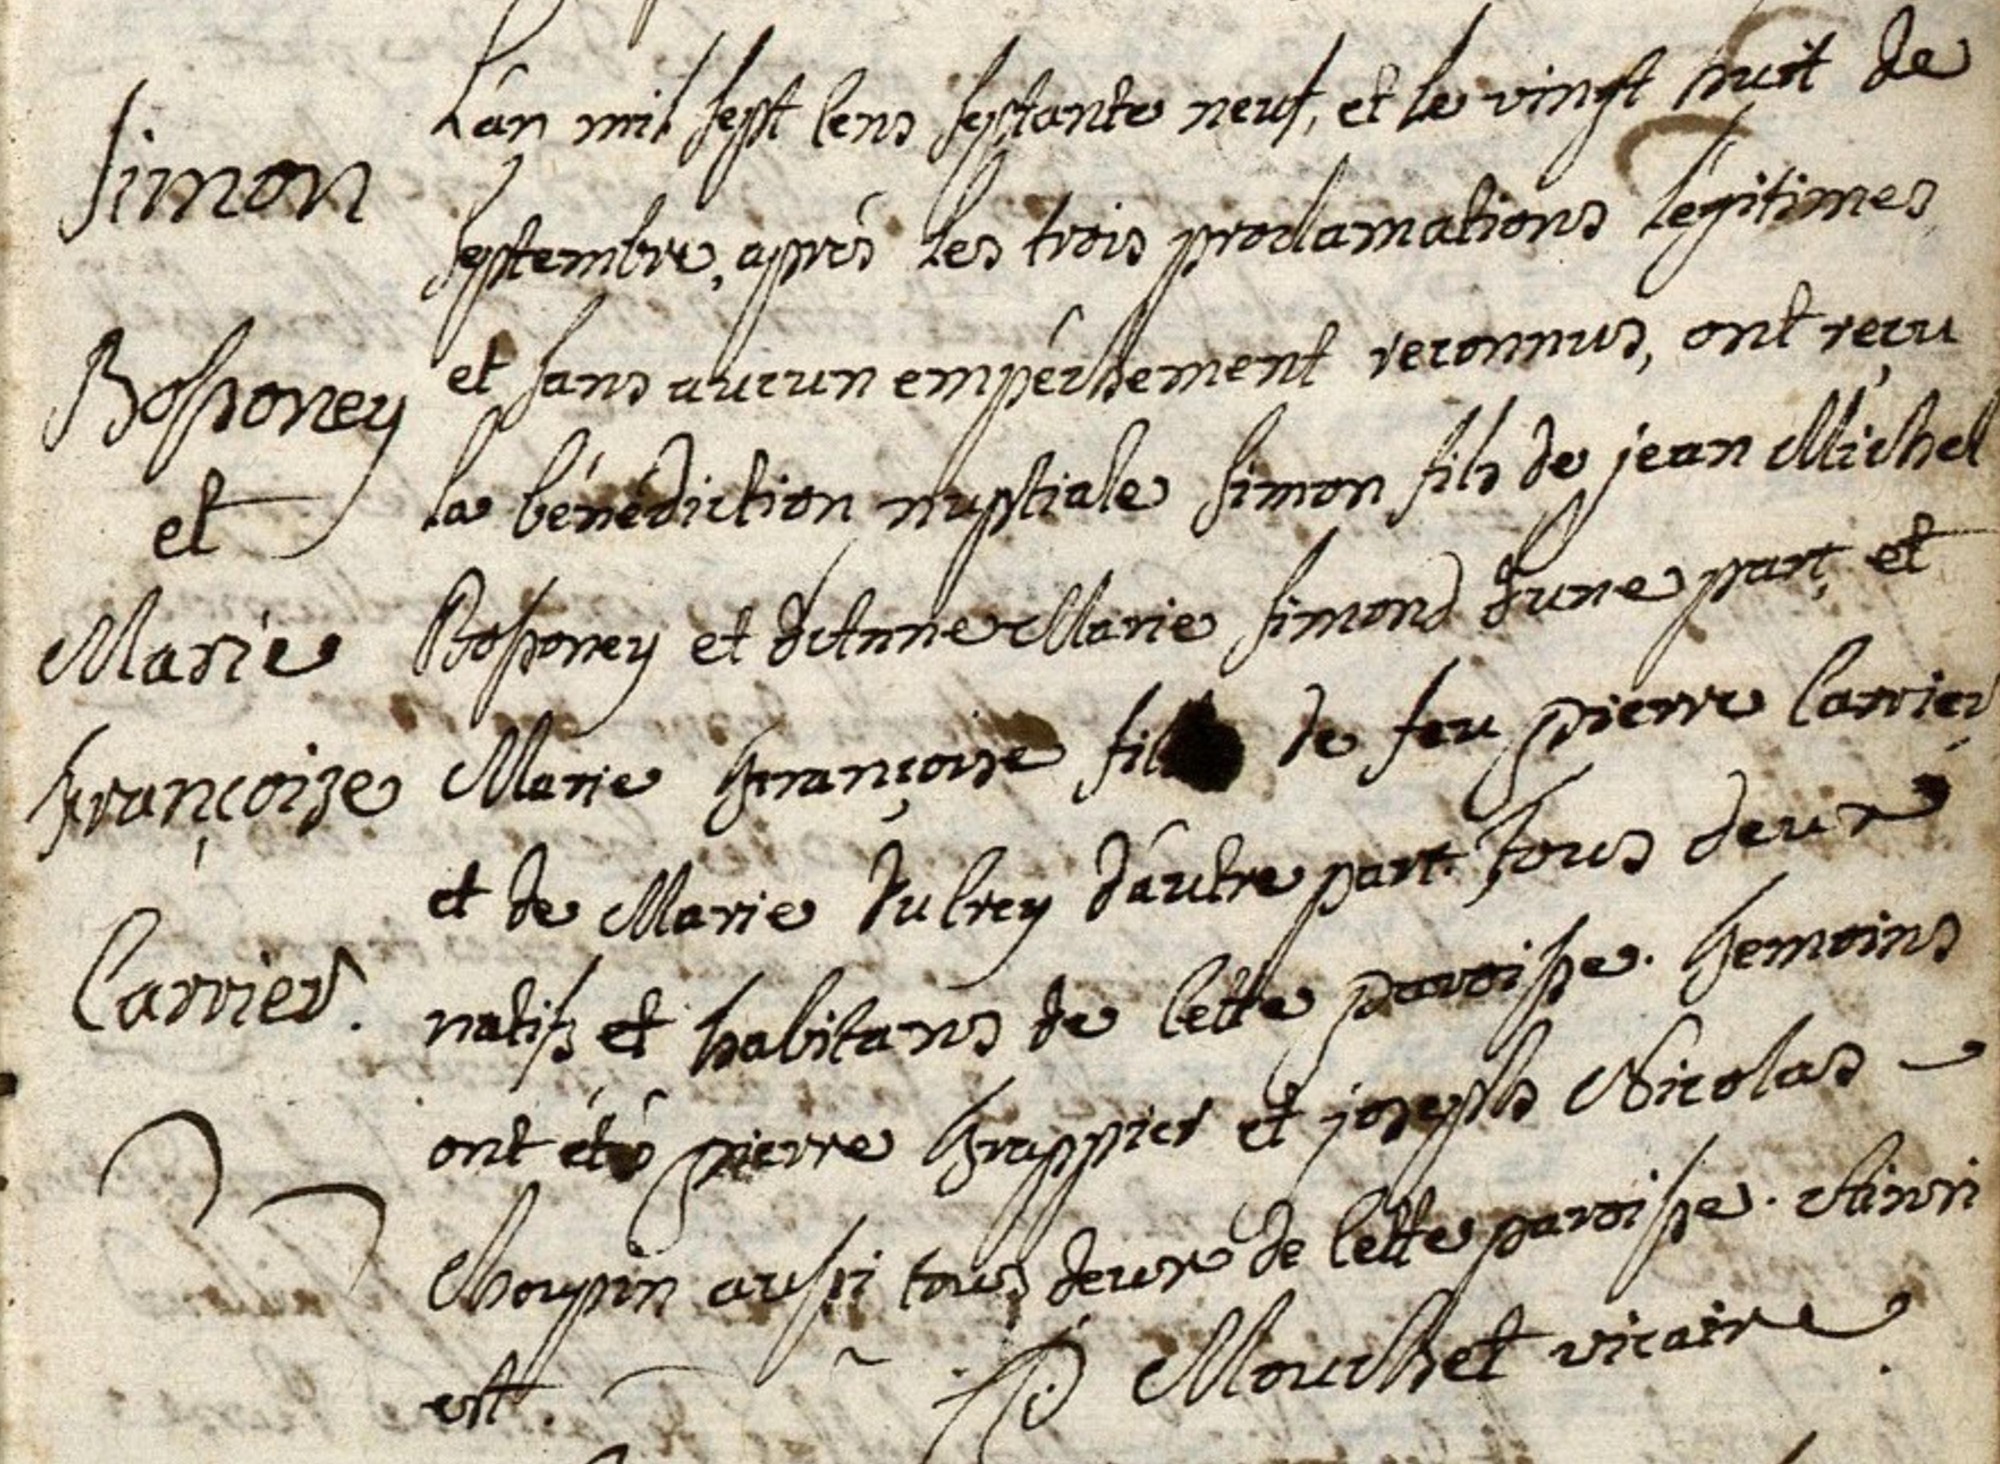 Simon
Bossoney
et
Marie
Françoize
Carrier.
L'an mil sept cens septante neuf, et le vingt huit de
septembre, aprés les trois proclamations légitimes,
et sans aucun empéchement reconnus, ont reçu
la bénédiction nuptiale Simon fils de jean Michel
Bossoney et d'Anne Marie Simond d'une part, et
Marie Françoise fille de feu pierre Carrier
et de Marie Ducrey d'autre part. tous deux
natifs et habitans de cette paroisse. Temoins
ont été pierre Frappier et joseph Nicolas
Choupin aussi tous deux de cette paroisse. Ainsi
est.
P. Mouchet vicaire.